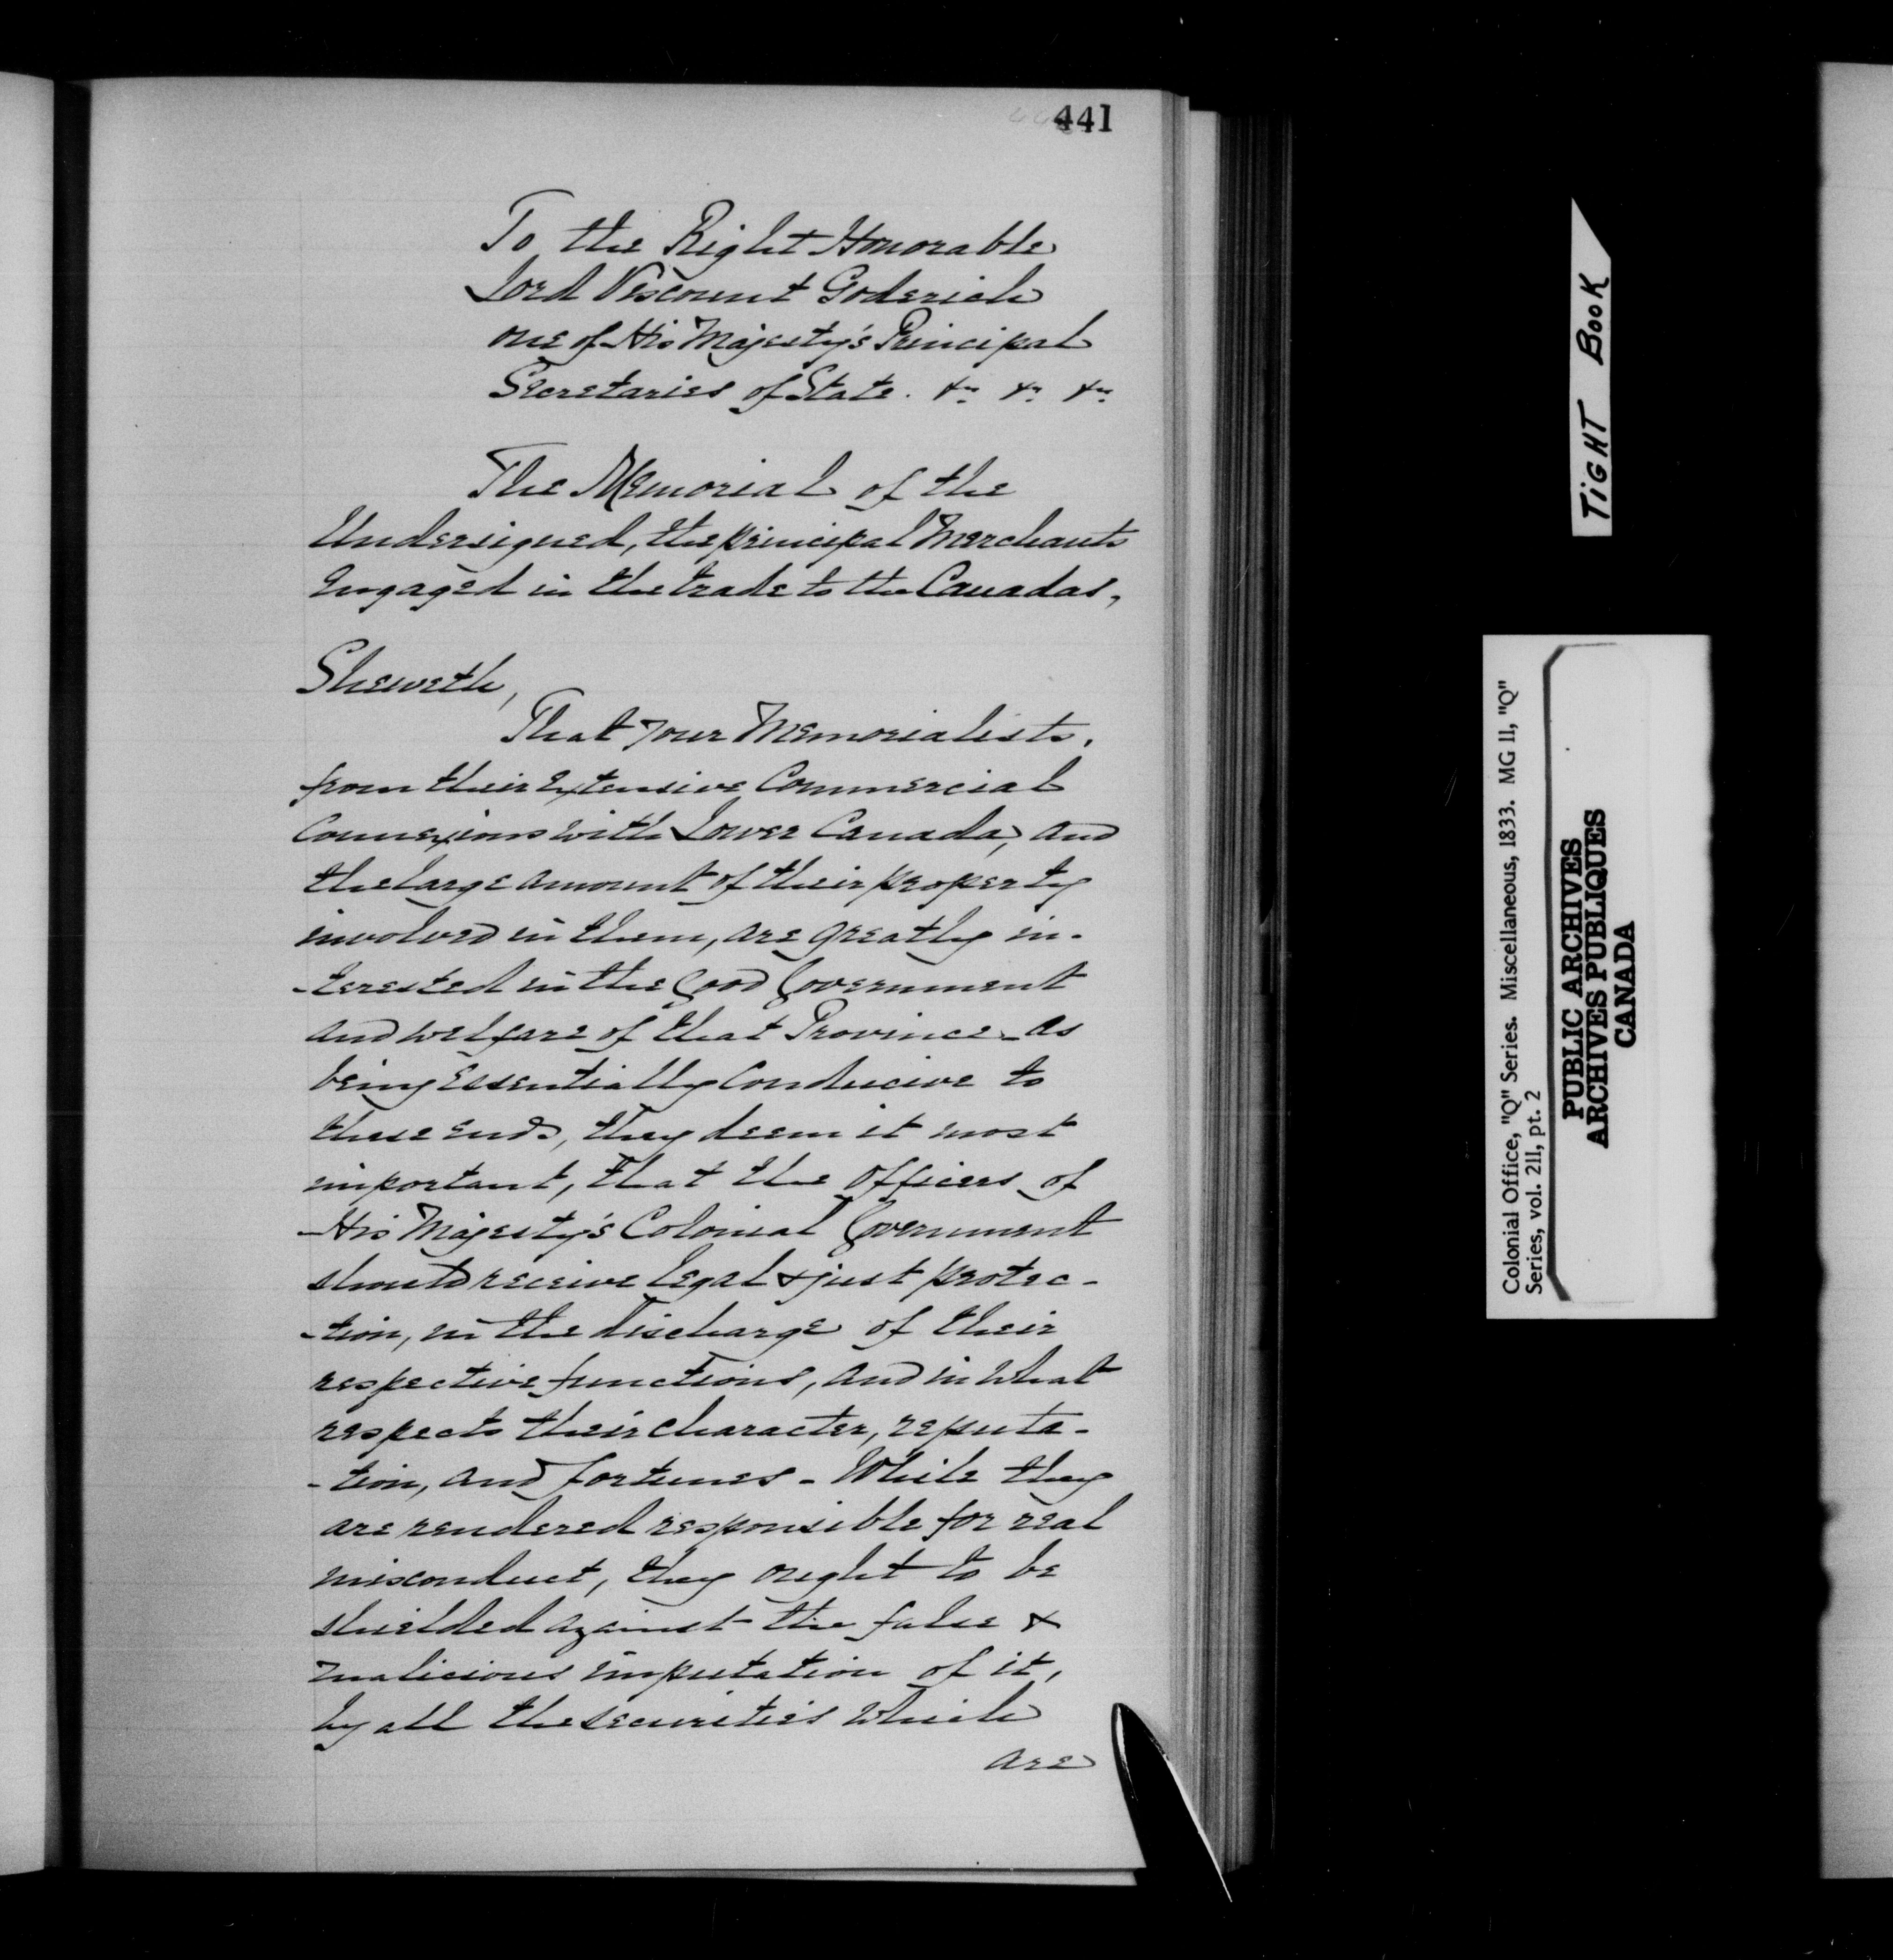 441
To the Right Honorable
Lord Viscount Goderich
one of His Majesty's Principal
Secretaries of State. &c &c &c
The Memorial of the
Undersigned, the principal Merchants
engaged in the trade to the Canadas,
Sheweth,
That your Memorialists,
from their extensive Commercial
Connexions with Lower Canada, and
the large amount of their property
involved in them, are greatly in-
-terested in the Good Government
and welfare of that Province - As
being essentially conducive to
these ends, they deem it most
important, that the officers of
His Majesty's Colonial Government
should receive legal & just protec-
-tion, in the discharge of their
respective functions, and in what
respects their character, reputa-
-tion, and fortunes - While they
are rendered responsible for real
misconduct, they ought to be
shielded against the false &
malicious imputation of it,
by all the securities which
are
TIGHT BOOK
Colonial Office, "Q" Series. Miscellaneous, 1833. MG 11, "Q"
Series, vol. 211, pt. 2
PUBLIC ARCHIVES
ARCHIVES PUBLIQUES
CANADA